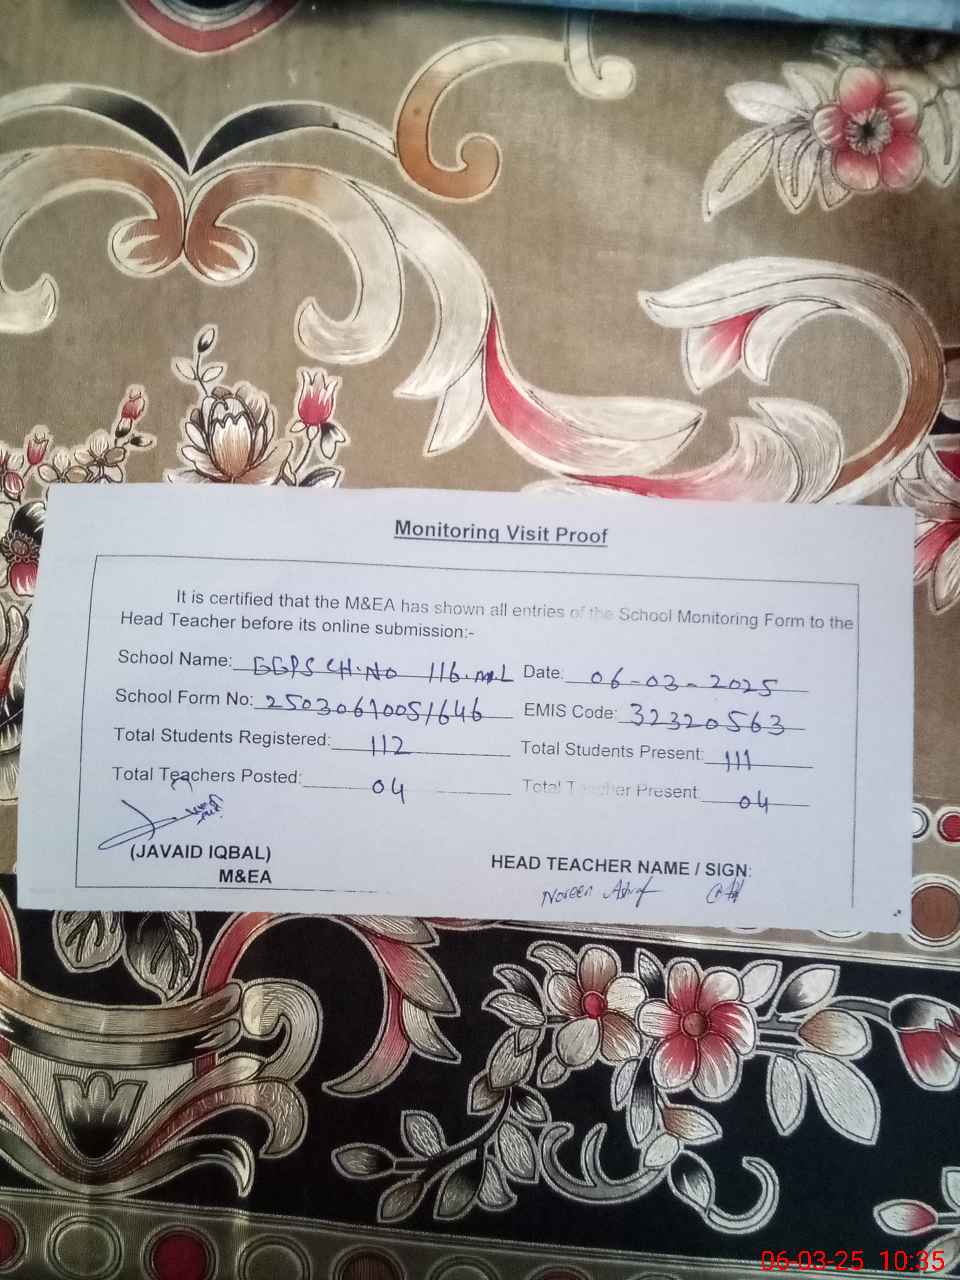 Monitoring Visit Proof
It is certified that the M&EA has shown all entries of the School Monitoring Form to the
Head Teacher before its online submission:-
School Name: GGPS CH.NO 116.ML Date: 06-03-2025
School Form No: 25030610051646 EMIS Code: 32320563
Total Students Registered: 112 Total Students Present: 111
Total Teachers Posted: 04 Total Teacher Present: 04
(JAVAID IQBAL)
M&EA
HEAD TEACHER NAME / SIGN:
Noreen Ashraf
06-03-25 10:35